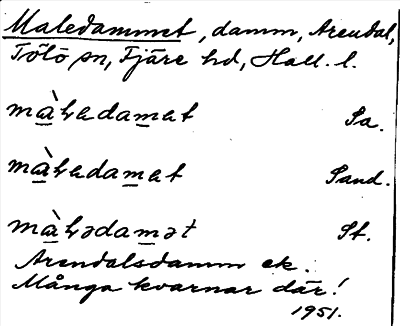 Maledammet, damm, Arendal,
Tölö sn, Fjäre hd, Hall. l.
màlədamat Sa.
màlədamat Sand.
màlədamət St.
Arendalsdamm ek.
Många kvarnar där!
1951.